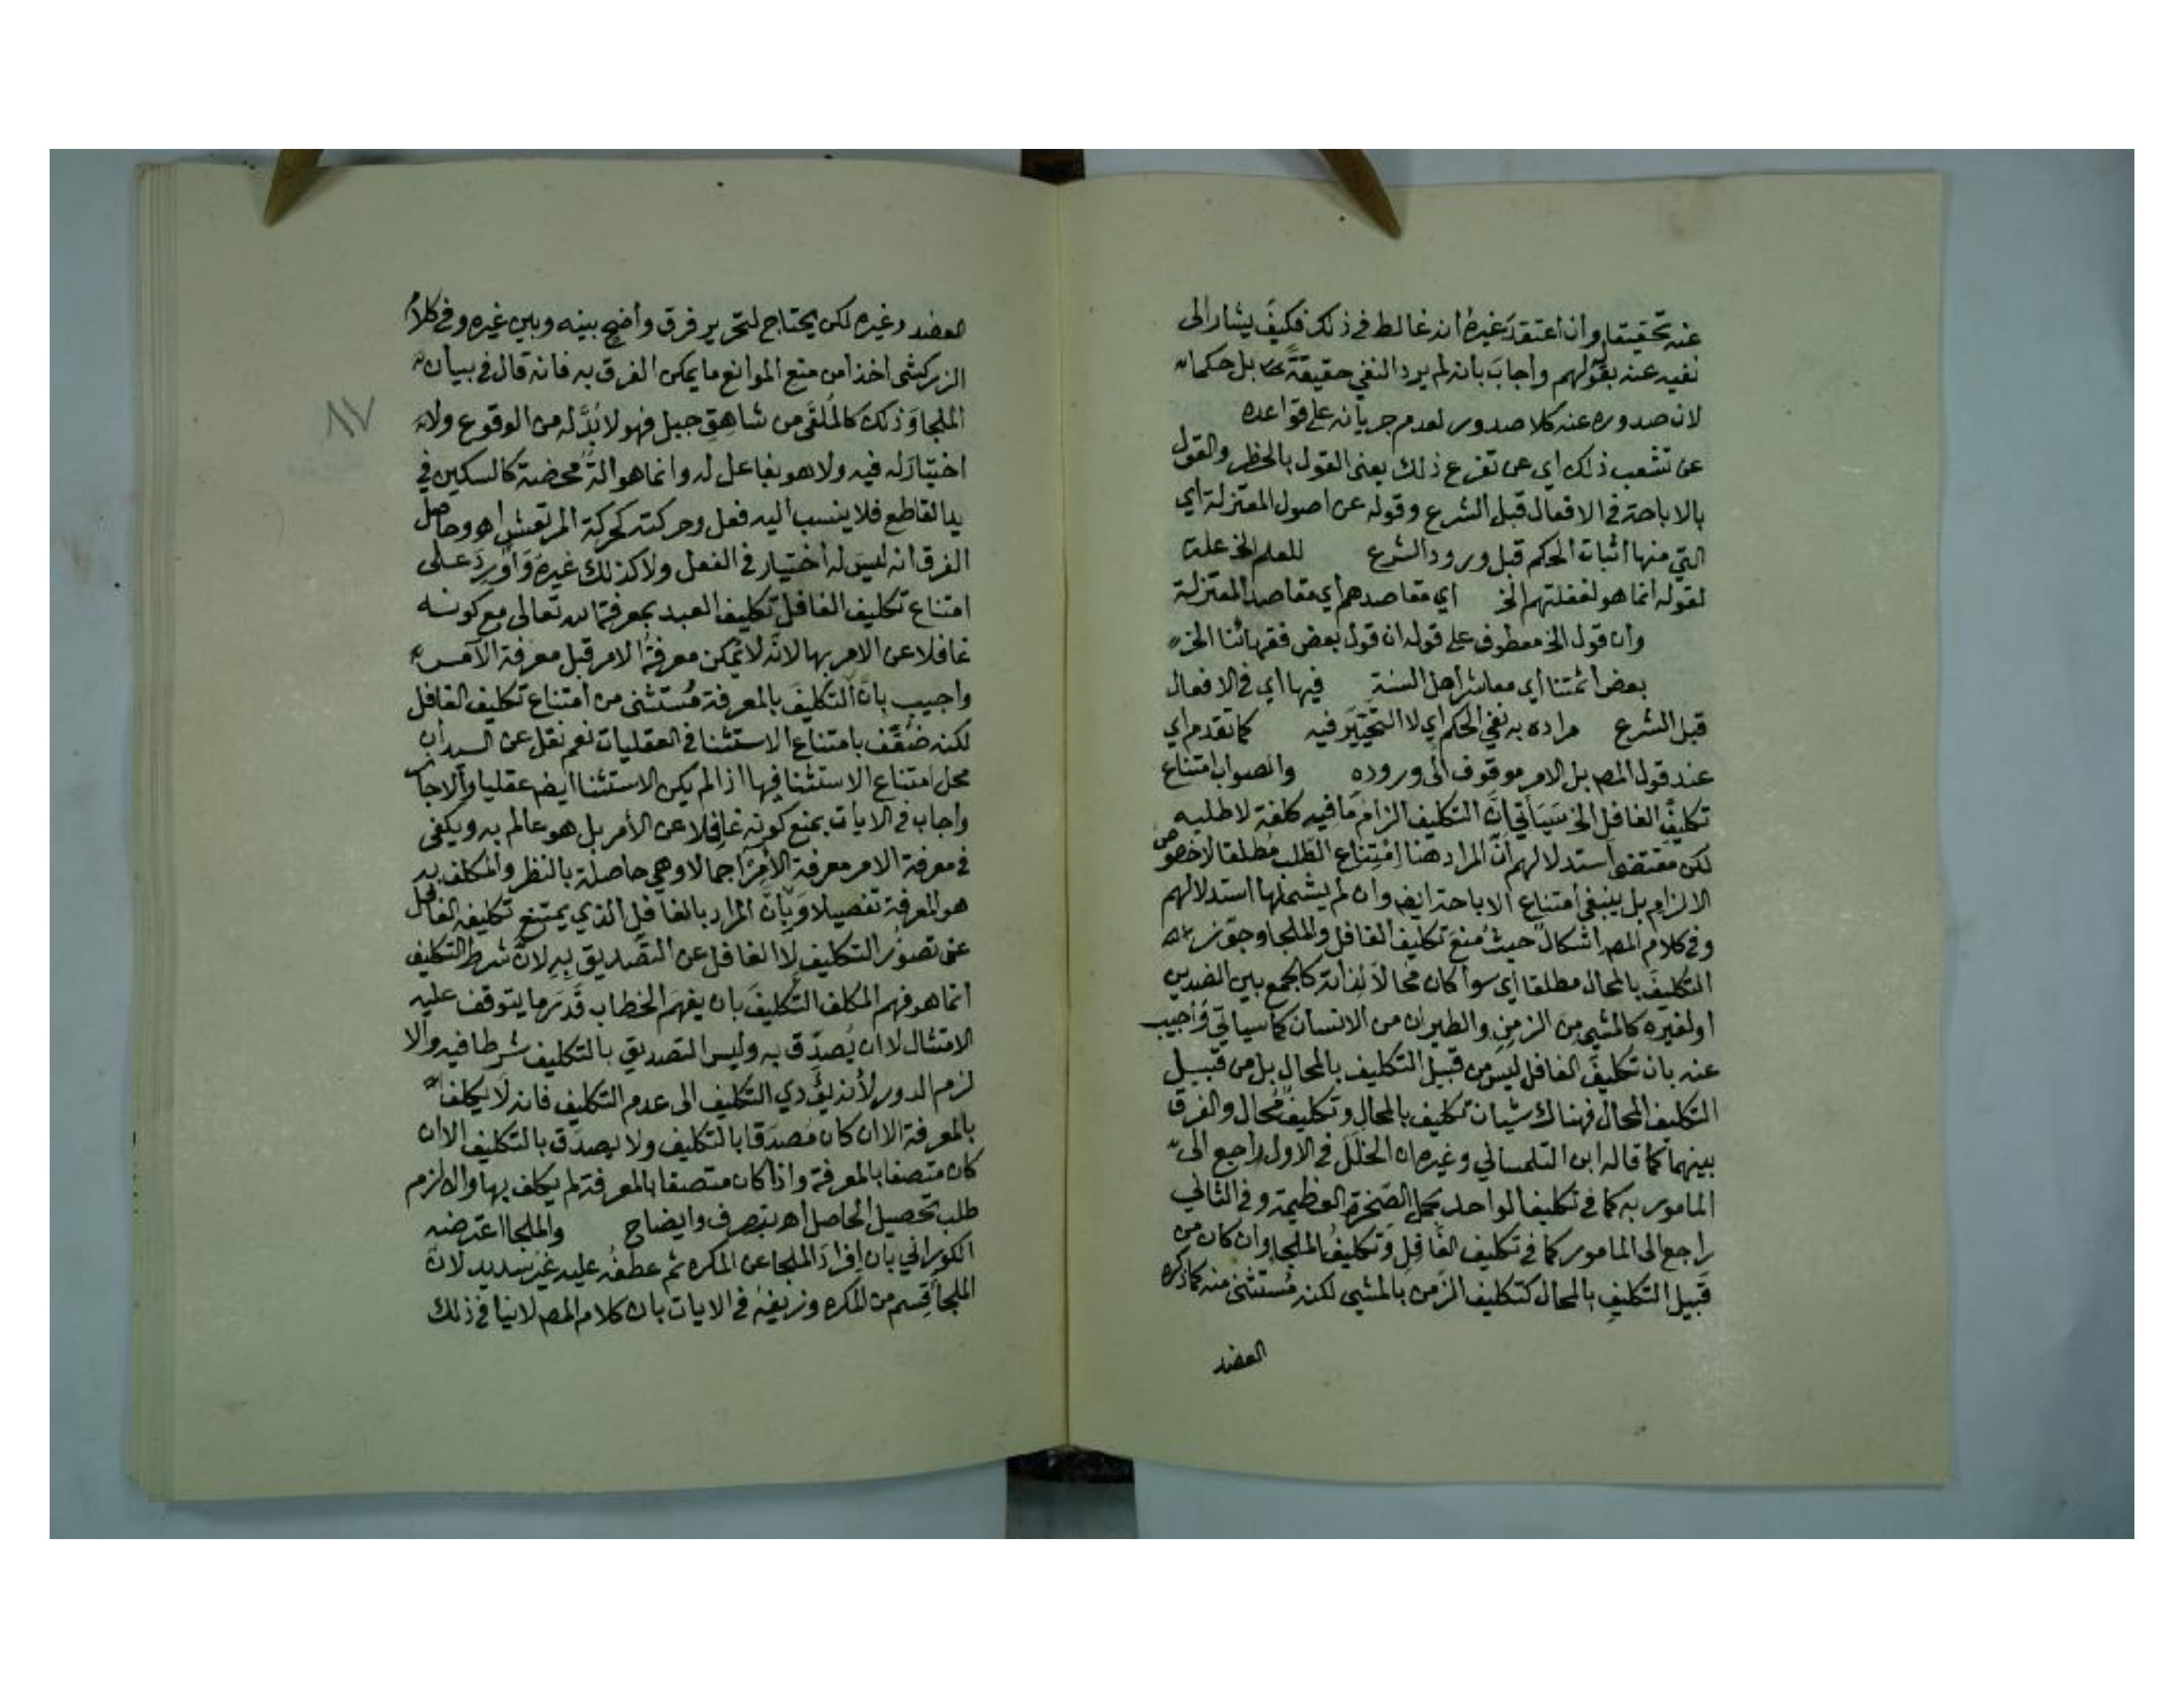 عنه تحقيقا وان اعتقد غيره انه غالط في ذلك فكيف يشار الى
نفيه عنه بقولهم واجاب بانه لم يرد النفي حقيقة بل حكما
لان صدوره عنه كلا صدور لعدم جريانه على قواعده
عن تشعب ذلك اي عن تفرع ذلك يعني القول بالحظر والقول
بالاباحة في الافعال قبل الشرع وقوله عن اصول المعتزلة اي
التي منها اثبات الحكم قبل ورود الشرع للعلم الخ علة
لقوله انما هو لغفلتهم الخ اي مقاصدهم اي مقاصد المعتزلة
وان قول الخ معطوف على قوله ان قول بعض فقهائنا الخ
بعض أئمتنا أي معاشر أهل السنة فيها اي في الافعال
قبل الشرع مراده به نفي الحكم اي لا التخيير فيه كما تقدم اي
عند قول المصـ بل الامر موقوف الى وروده والصواب امتناع
تكليف الغافل الخ سيأتي ان التكليف الزام ما فيه كلفة لا طلبه
لكن مقتضى استدلالهم ان المراد هنا امتناع الطلب مطلقا لا خصوص
الالزام بل ينبغي امتناع الاباحة ايضـ وان لم يشملها استدلالهم
وفي كلام المصـ اشكال حيث منع تكليف الغافل والملجا وجوز
التكليف بالمحال مطلقا اي سوا كان محالا لذاته كالجمع بين الضدين
او لغيره كالمشي من الزمن والطيران من الانسان كما سياتي واجيب
عنه بان تكليف الغافل ليس من قبيل التكليف بالمحال بل من قبيل
التكليف المحال فهناك شيان تكليف بالمحال وتكليف محال والفرق
بينهما كما قاله ابن التلمساني وغيره ان الخلل في الاول راجع الى
المامور به كما في تكليف الواحد حمل الصخرة العظيمة وفي الثاني
راجع الى المامور كما في تكليف الغافل وتكليف الملجا وان كان من
قبيل التكليف بالمحال كتكليف الزمن بالمشي لكنه مستثنى منه كما ذكره
العضد
العضد وغيره لكن يحتاج لتحرير فرق واضح بينه وبين غيره وفي كلام
الزركشي اخذا من منع الموانع ما يمكن الفرق به فانه قال في بيان
الملجا وذلك كالملقى من شاهق جبل فهو لا بد له من الوقوع ولا
اختيار له فيه ولا هو بفاعل له وانما هو الة محضة كالسكين في
يد القاطع فلا ينسب اليه فعل وحركته كحركة المرتعش اهـ وحاصل
الفرق انه ليس له اختيار في الفعل ولا كذلك غيره وأورد على
امتناع تكليف الغافل تكليف العبد بمعرفة الله تعالى مع كونه
غافلا عن الامر بها لانه لا تمكن معرفة الامر قبل معرفة الآمر
واجيب بان التكليف بالمعرفة مستثنى من امتناع تكليف الغافل
لكنه ضعف بامتناع الاستثنا في العقليات نعم نقل عن السيد ان
محل امتناع الاستثنا فيها اذا لم يكن الاستثنا ايضـ عقليا والا جاز
واجاب في الايات بمنع كونه غافلا عن الأمر بل هو عالم به ويكفي
في معرفة الامر معرفة الآمر اجمالا وهي حاصلة بالنظر والمكلف به
هو المعرفة تفصيلا وبان المراد بالغافل الذي يمتنع تكليفه الغافل
عن تصور التكليف لا الغافل عن التصديق به لان شرط التكليف
انما هو فهم المكلف التكليف بان يفهم الخطاب قدر ما يتوقف عليه
الامتثال لا ان يصدق به وليس التصديق بالتكليف شرطا فيه والا
لزم الدور لأنه يؤدي التكليف الى عدم التكليف فانه لا يكلف
بالمعرفة الا ان كان مصدقا بالتكليف ولا يصدق بالتكليف الا ان
كان متصفا بالمعرفة واذا كان متصفا بالمعرفة لم يكلف بها والا لزم
طلب تحصيل الحاصل اهـ بتصرف وايضاح والملجا اعترضه
الكوراني بان افراد الملجا عن المكره ثم عطفه عليه غير سديد لان
الملجأ قسم من المكره وزيفه في الايات بان كلام المصـ لا ينافي ذلك
٨٧